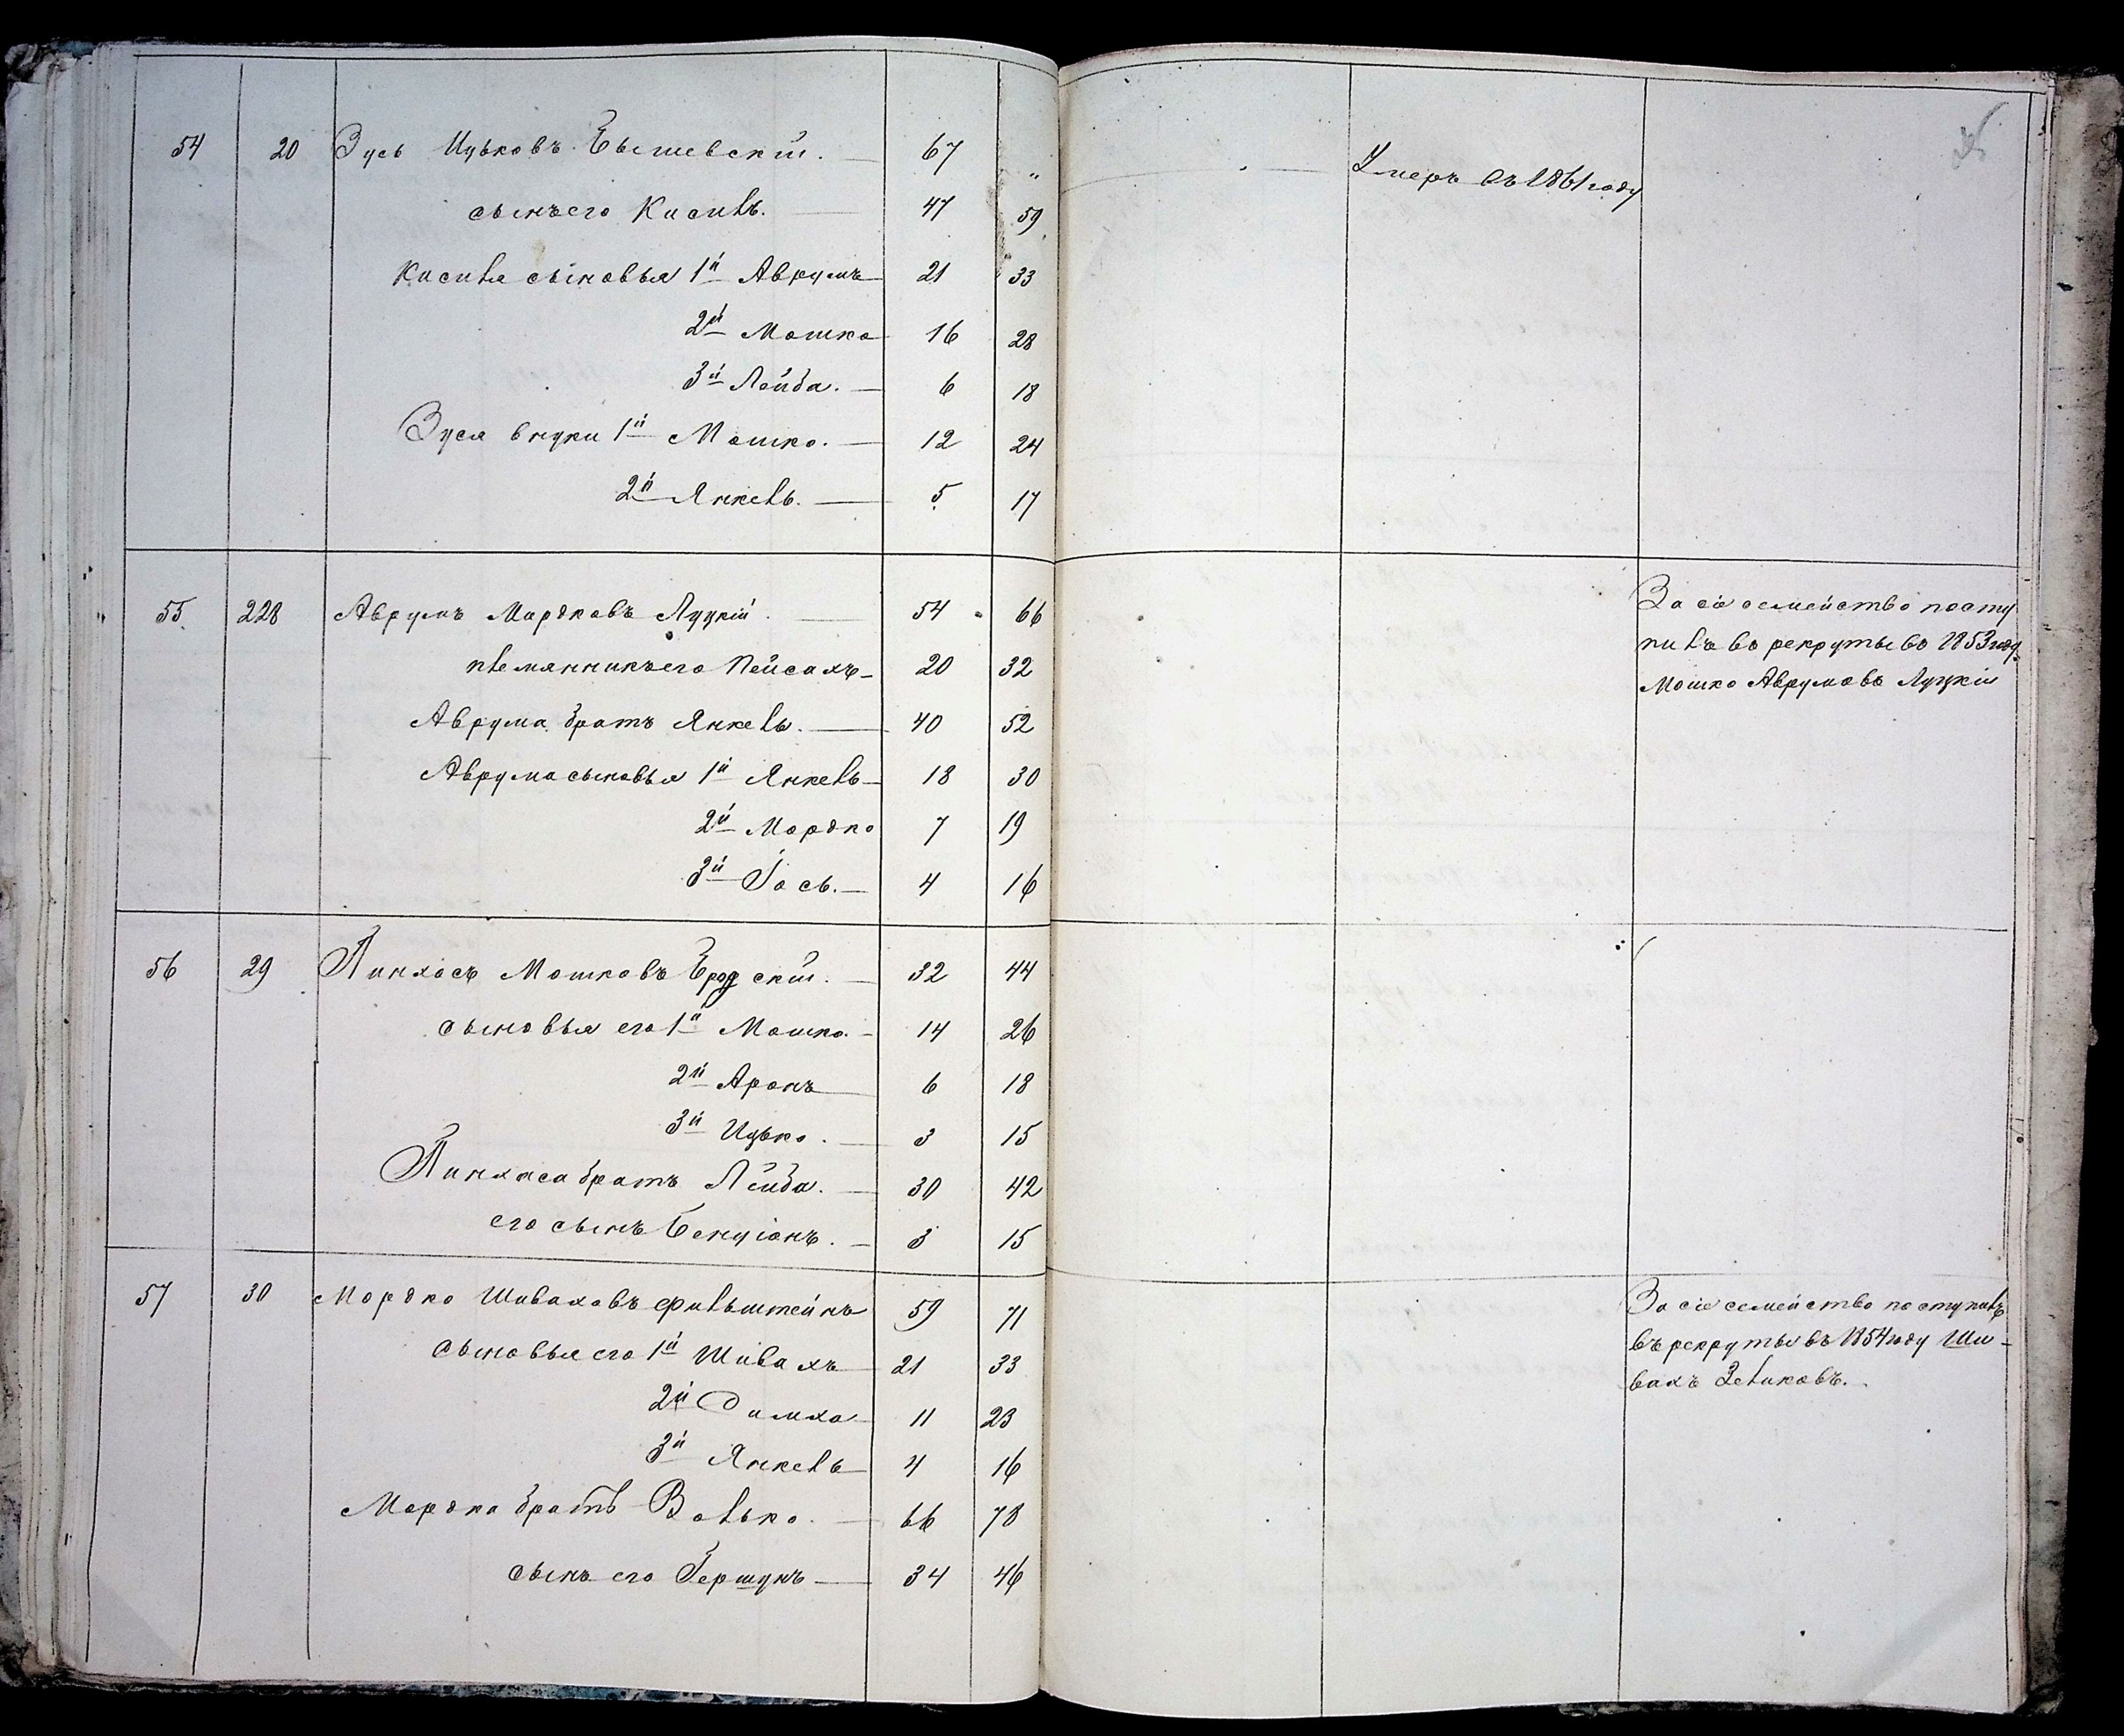 54 20 Зусь Ицьковъ Бышевскій. 67 "
Умеръ въ 1861 году
сынъ его Кисиль. 47 59
Кисиля сыновья 1й Аврумъ 21 33
2й Мошко 16 28
3й Лейба. 6 18
Зуся внуки 1й Мошко. 12 24
2й Янкель. 5 17
55 228 Аврумъ Мордковъ Луцкій. 54 66
племянникъ его Пейсахъ 20 32
Аврума братъ Янкель. 40 52
Аврума сыновья 1й Янкель 18 30
2й Мордко 7 19
3й Іось. 4 16
За сіе семейство посту
пилъ въ рекруты въ 1853 году
Мошко Аврумовъ Луцкій
56 29 Пинхасъ Мошковъ Бродскій. 32 44
сыновья его 1й Мошко. 14 26
2й Аронъ 6 18
3й Ицько. 3 15
Пинхаса братъ Лейба. 30 42
его сынъ Бенціонъ. 3 15
57 30 Мордко Шиваховъ Фильштейнъ 59 71
сыновья его 1й Шивахъ 21 33
2й Симха 11 23
3й Янкель 4 16
Мордка братъ Волько. 66 78
сынъ его Гершунъ 34 46
За сіе семейство поступилъ
въ рекруты въ 1854 году Ши-
вахъ Зеликовъ.